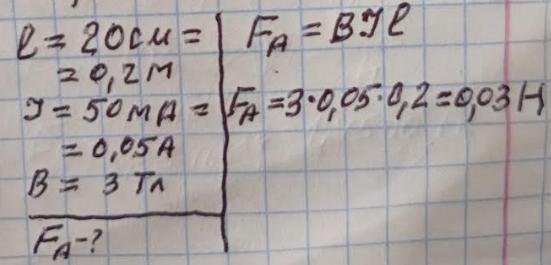 l = 20см =
= 0,2м
I = 50мА =
= 0,05А
B = 3 Тл
FА - ?
FА = BIl
FА = 3·0,05·0,2 = 0,03 Н